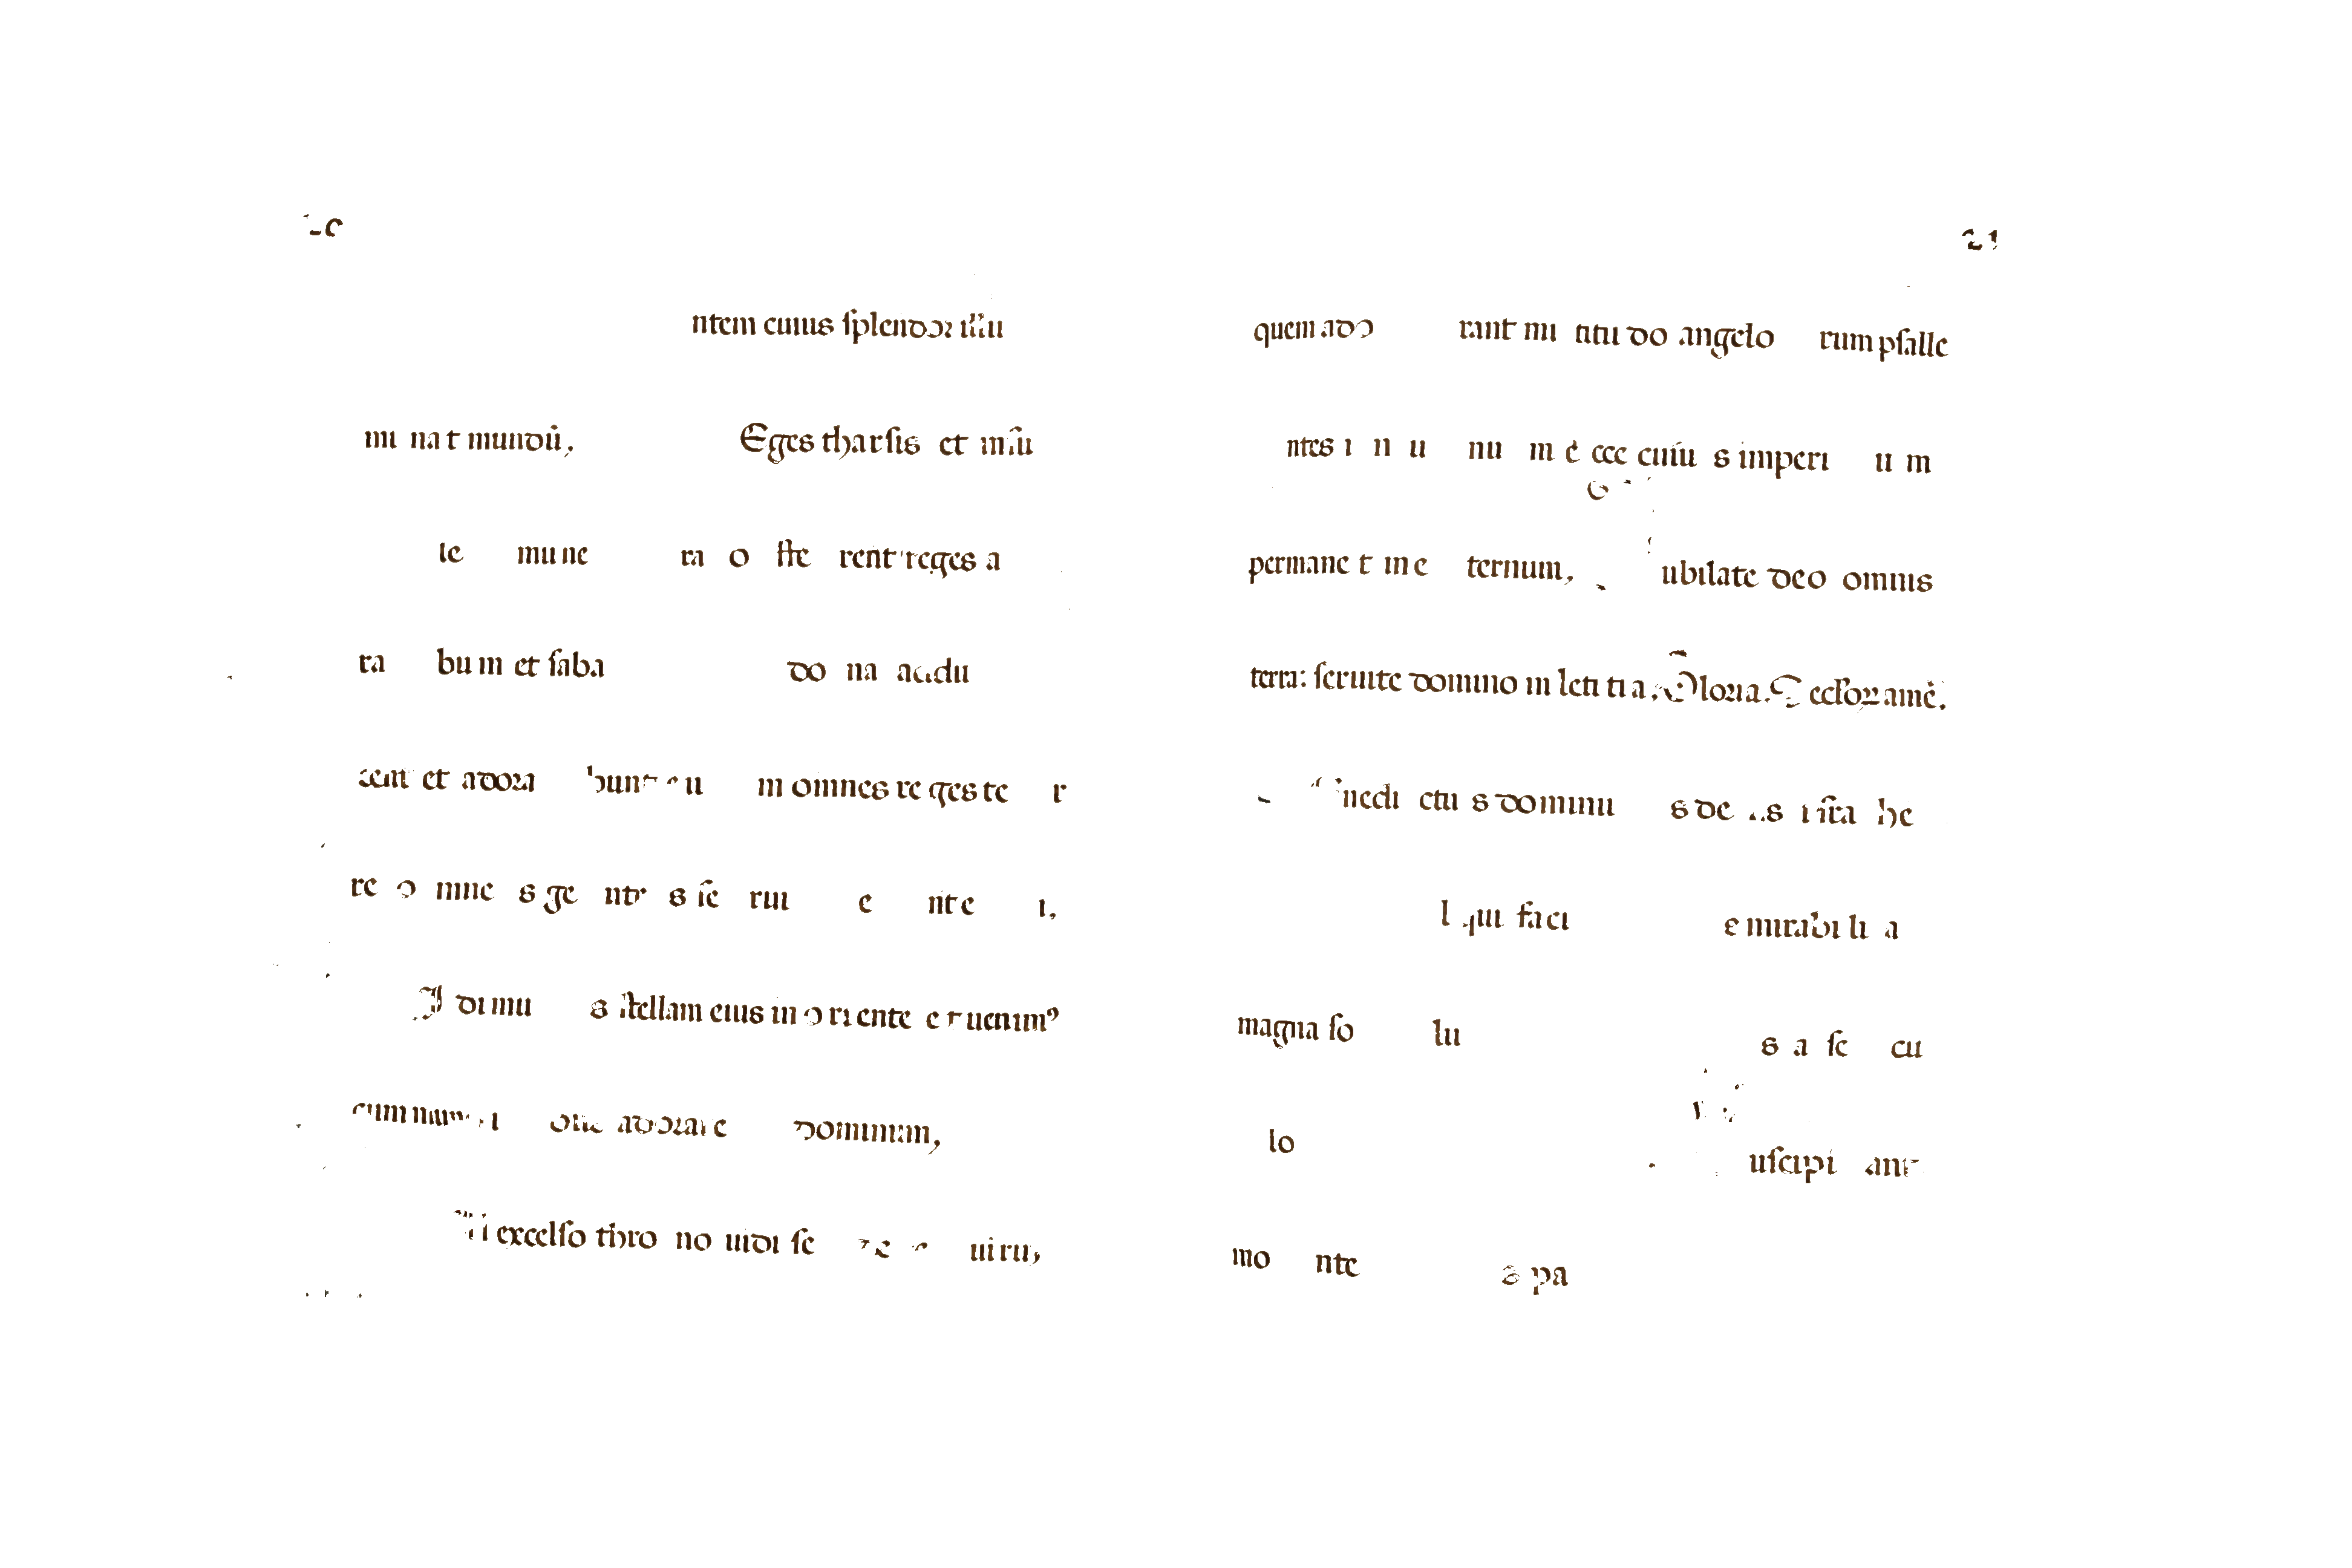 ntem cuius ſplendor illu
mi na t mundū,
Eges tharſis et inſu
le mu ne ra o ffe rent reges a
ra bu m et ſaba do na addu
cent et adora bunt eu m omnes re ges te r
re o mne s ge nte s ſe rui e nt e i.
I di mu s ſtellam eius in o ri ente e t uenim⁹
cum mune ri adorare dominum,
excelſo thro no uidi ſe uirū,
21
quem ado rant mu titu do angelo rum pſalle
ntes i n u nu m e cce cuiu s imperi u m
permane t in e ternum, ubilate deo omnis
terra: ſeruite domino in leti ti a. Gloria. ſeclor amē.
nedi ctu s dominu s de us iſra he
l qui faci e mirabi li a
magna ſo lu s a ſe cu
lo
uſcipi ant
mo nte s pa